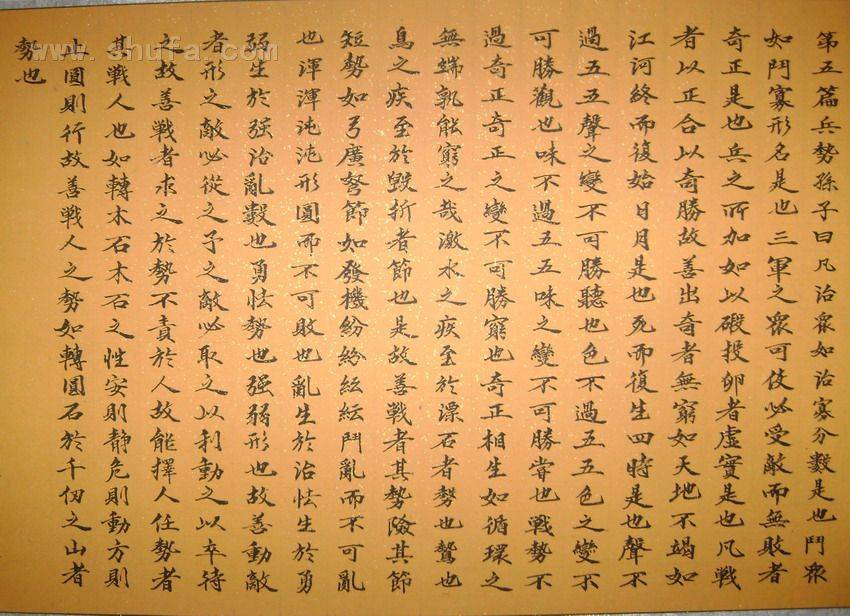 第五篇兵勢孫子曰凡治眾如治寡分數是也鬥眾
如鬥寡形名是也三軍之眾可使必受敵而無敗者
奇正是也兵之所加如以碬投卵者虛實是也凡戰
者以正合以奇勝故善出奇者無窮如天地不竭如
江河終而復始日月是也死而復生四時是也聲不
過五五聲之變不可勝聽也色不過五五色之變不
可勝觀也味不過五五味之變不可勝嘗也戰勢不
過奇正奇正之變不可勝窮也奇正相生如循環之
無端孰能窮之哉激水之疾至於漂石者勢也鷙也
鳥之疾至於毀折者節也是故善戰者其勢險其節
短勢如弓廣弩節如發機紛紛紜紜鬥亂而不可亂
也渾渾沌沌形圓而不可敗也亂生於治怯生於勇
弱生於强治亂數也勇怯勢也强弱形也故善動敵
者形之敵必從之予之敵必取之以利動之以卒待
之故善戰者求之於勢不責於人故能擇人任勢者
其戰人也如轉木石木石之性安則静危則動方則
止圓則行故善戰人之勢如轉圓石於千仞之山者
勢也
www.shufa.com